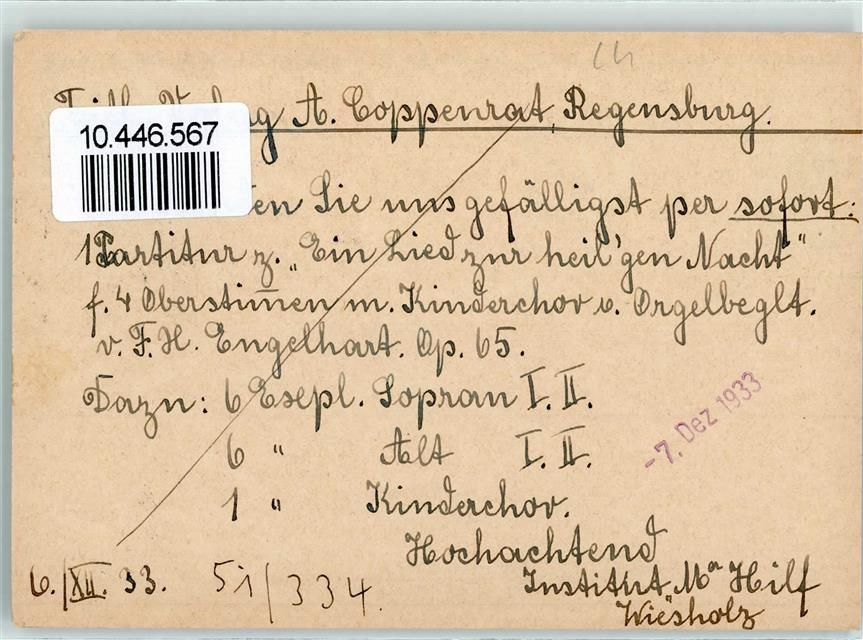 Verlag A. Coppenrat, Regensburg.
10.446.567
Sie uns gefälligst per sofort:
1 Partitur z. „Ein Lied zur heil'gen Nacht"
f. 4 Oberstim̄en m. Kinderchor u. Orgelbeglt.
v. F. H. Engelhart. Op. 65.
Dazu: 6 Exepl. Sopran I. II.
6 " Alt I. II.
- 7. Dez 1933
1 " Kinderchor.
Hochachtend
6./XII. 33. 51/334.
Institut Ma Hilf
Wiesholz